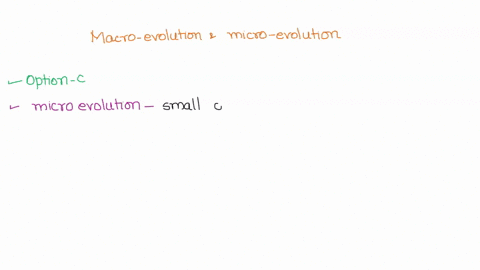 Macro-evolution & micro-evolution
✓ Option-C
✓ micro evolution - small c